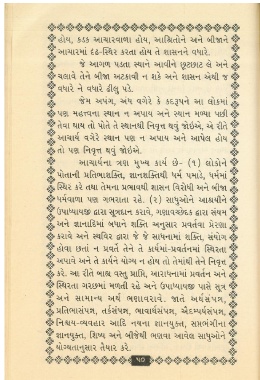 હોય, કડક આચારવાળા હોય, આશ્રિતોને અને બીજાને
આચારમાં દૃઢ-સ્થિર કરતા હોય તે શાસનને વધારે.
જે આગળ પડતા સ્થાને આવીને છૂટછાટ લે અને
ચલાવે તેને બીજા અટકાવી ન શકે અને શાસન એથી જ
વધારે ને વધારે ઢીલુ પડે.
જેમ અપંગ, અંધ વગેરે કે કદરૂપને આ લોકમાં
પણ મહત્ત્વના સ્થાન ન અપાય અને સ્થાન મળ્યા પછી
તેવા થાય તો પોતે તે સ્થાનથી નિવૃત્ત થવું જોઇએ. એ રીતે
આચાર્ય વગેરે સ્થાન પણ ન અપાય અને આપેલ હોય
તો પણ નિવૃત્ત થવું જોઇએ.
આચાર્યના ત્રણ મુખ્ય કાર્ય છે- (૧) લોકોને
પોતાની પ્રતિભાશક્તિ, જ્ઞાનશક્તિથી ધર્મ પમાડે, ધર્મમાં
સ્થિર કરે તથા તેમના પ્રભાવથી શાસન વિરોધી અને બીજા
ધર્મવાળા પણ ગભરાતા રહે. (૨) સાધુઓને આશ્રયીને
ઉપાધ્યાયજી દ્વારા સૂત્રદાન કરાવે, ગણાવચ્છેદક દ્વારા સંયમ
અને જ્ઞાનાદિમાં બધાને શક્તિ અનુસાર પ્રવર્તવા પ્રેરણા
કરાવે અને સ્થવિર દ્વારા જે જે સાધનામાં શક્તિ, સંયોગ
હોવા છતાં ન પ્રવર્તે તેને તે કાર્યમાં-પ્રવર્તનમાં સ્થિરતા
અપાવે અને તે કાર્યને યોગ્ય ન હોય તો તેમાંથી તેને નિવૃત્ત
કરે. આ રીતે બાહ્ય વસ્તુ પ્રાપ્તિ, આરાધનામાં પ્રવર્તન અને
સ્થિરતા ગચ્છમાં મળતી રહે અને ઉપાધ્યાયજી પાસે સૂત્ર
અને સામાન્ય અર્થ ભણાવરાવે. જાતે અર્થસંપન્ન,
પ્રતિભાસંપન્ન, તર્કસંપન્ન, ભાવાર્થસંપન્ન, ઐદમ્પર્યસંપન્ન,
નિશ્ચય-વ્યવહાર આદિ નયના જ્ઞાનયુક્ત, સપ્તભંગીના
જ્ઞાનયુક્ત, શિષ્ય અને બીજેથી ભણવા આવેલ સાધુઓને
યોગ્યતાનુસાર તૈયાર કરે.